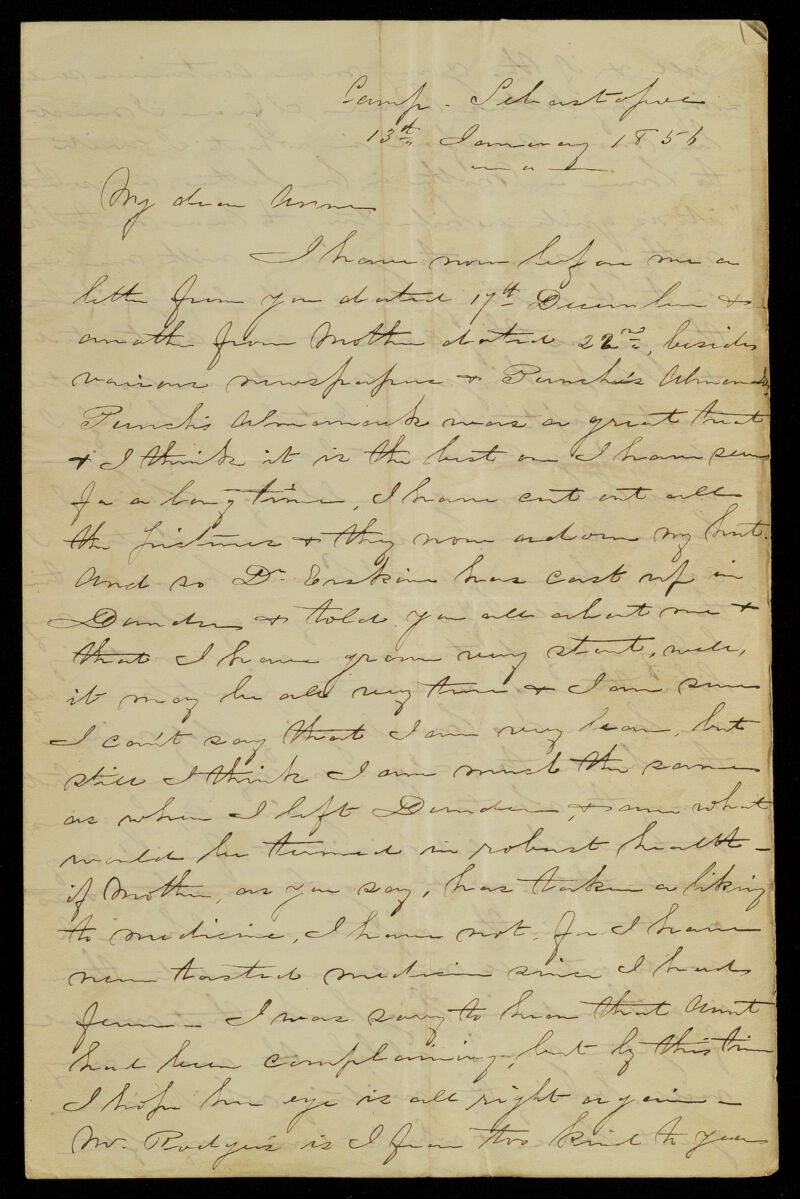 Camp - Sebastopol
13th January 1856
My dear Anne
I have now before me a
letter from you dated 17th December &
another from Mother dated 22nd, besides
various newspapers & Punch's Almanack,
Punch's Almanack was a great treat
& I think it is the best one I have seen
for a long time, I have cut out all
the pictures & they now adorn my hut.
And so Dr Erskine has cast up in
Dundee & told you all about me &
that I have grown very stout, well,
it may be all very true & I am sure
I can't say that I am very lean, but
still I think I am much the same
as when I left Dundee, & am what
would be termed in robust health -
if Mother, as you say, has taken a liking
to medicine, I have not, for I have
never tasted medicine since I had
fever - I was sorry to hear that Aunt
had been complaining, but by this time
I hope her eye is all right again -
Mr Rodgers is I fear too kind to you